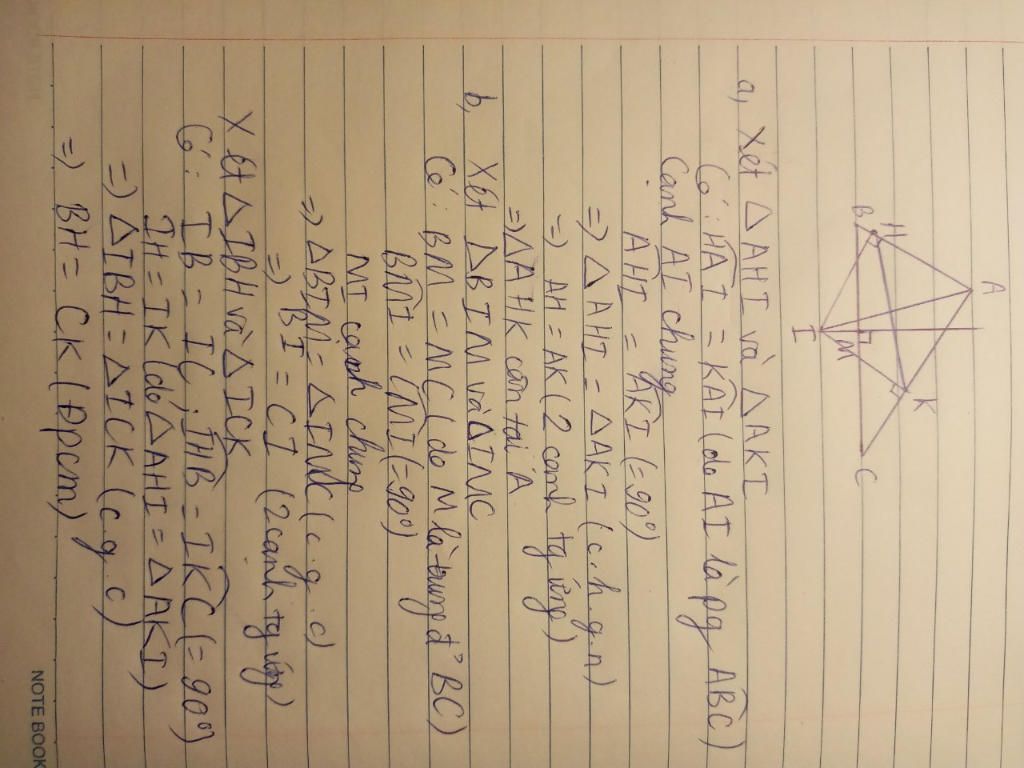 A
H
B
K
M
I
C
a, Xét △AHI và △AKI
Có: HAI = KAI (do AI là pg ABC)
Cạnh AI chung
AHI = AKI (=90°)
=> △AHI = △AKI (c.h.g.n)
=> AH = AK (2 cạnh tg ứng)
=> △AHK cân tại A
b, Xét △BIM và △IMC
Có: BM = MC (do M là trung đ' BC)
BMI = CMI (=90°)
MI cạnh chung
=> △BIM = △IMC (c.g.c)
=> BI = CI (2 cạnh tg ứng)
Xét △IBH và △ICK
Có: IB = IC; IHB = IKC (=90°)
IH = IK (do △AHI = △AKI)
=> △IBH = △ICK (c g c)
=> BH = CK (Đpcm)
NOTE BOOK